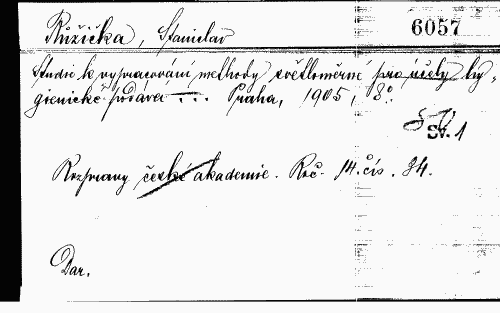 Růžička, Stanislav
6057
Studie k vypracování methody světloměrné pro účely hy-
gienické podává ... Praha, 1905, 8°.
Sv. 1
Rozpravy české akademie. Roč. 14. čís. 34.
Dar.